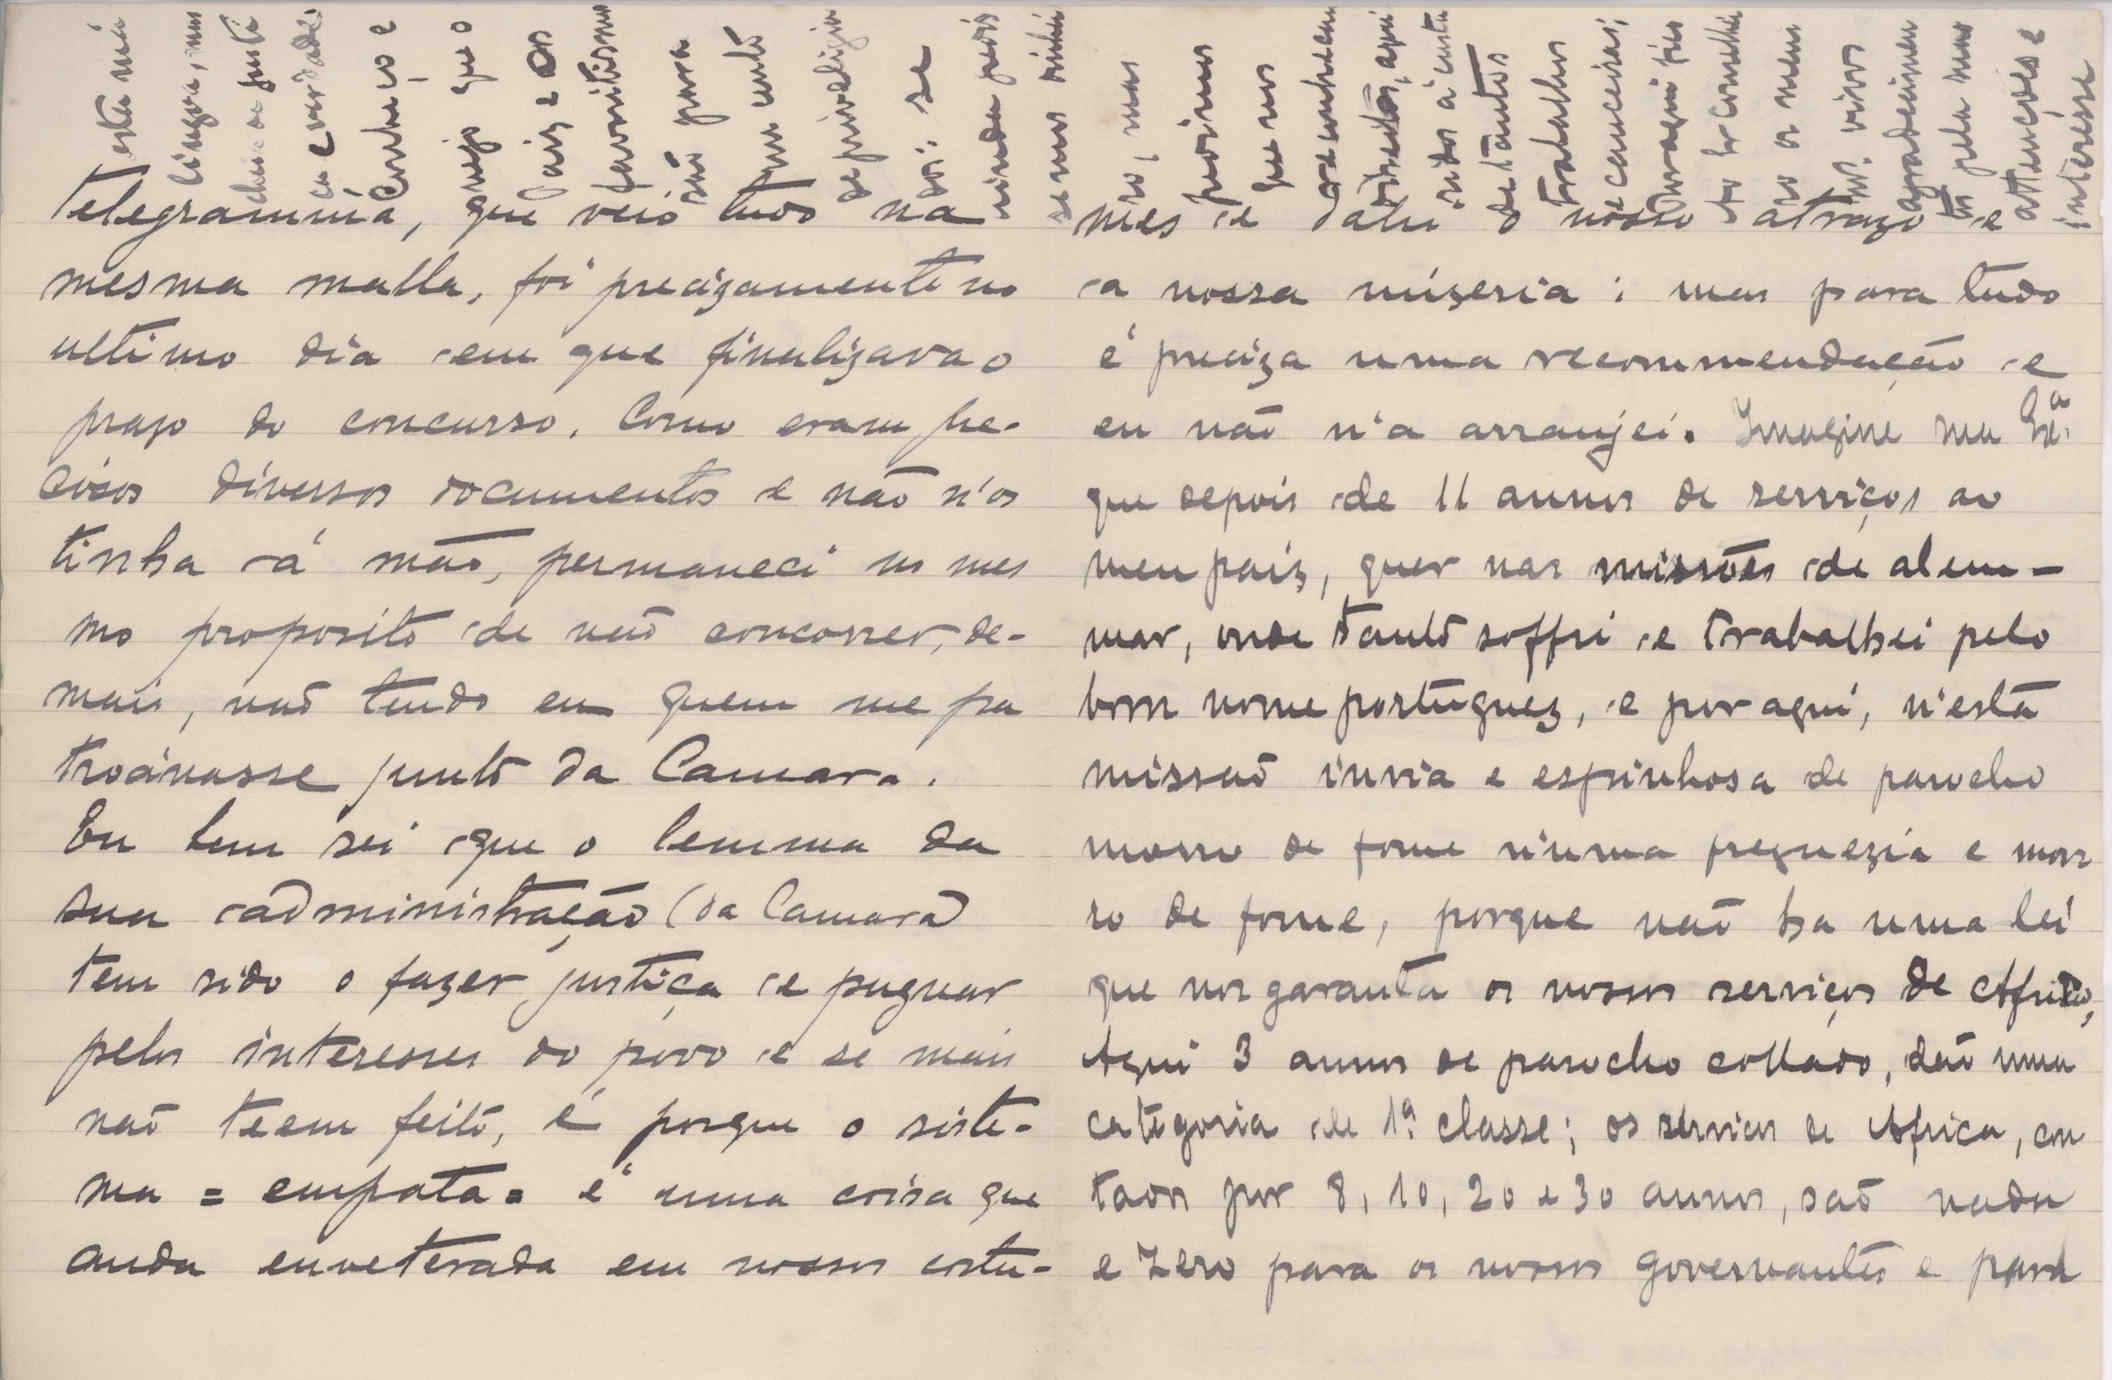 telegramma, que veio tudo na
mesma malla, foi precizamente no
ultimo dia em que finalizava o
prazo do concurso. Como eram pre-
cisos diversos documentos e não n'os
tinha á mão, permaneci no mes
mo proposito de não concorrer, de-
mais, não tendo eu quem me pa
trocinasse junto da Camara.
Eu bem sei que o lemma da
sua administração (da Camara)
tem sido o fazer justiça e pugnar
pelos interesses do povo e se mais
não teem feito, é porque o siste-
ma = empata = é uma coisa que
anda enveterada em nossos costu-
mes e dahi o nosso atrazo e
a nossa mizeria; mas para tudo
é preciza uma recommendação e
eu não n'a arranjei. Imagine
que depois de 11 annos de serviços ao
meu paiz, quer nas missões de alem-
mar, onde tanto soffri e trabalhei pelo
bom nome portuguez, e por aqui, n'esta
missão invia e espinhosa de parocho
morro de fome n'uma freguezia e mor
ro de fome, porque não ha uma lei
que nos garanta os nossos serviços de Africa,
Aqui 3 annos de parocho collado, dão uma
categoria de 1ª classe; os serviços de Africa, con
tados por 8, 10, 20 e 30 annos, são nada
e zero para os nossos governantes e para
esta má
lingua, mas
cheia de justi
ça e verdade.
Conheço e
vejo que o
Paiz e os
favoritismo
são para
quem está
de
só: se
ainda pois
se nos
ro, mas
peorinos
que nos
direitos, aqui
ridos á custa
de tantos
trabalhos
e canceiras;
Por aqui fico
ro os meus
vivos
agradecimen
tos pelas suas
attenções e
interesse